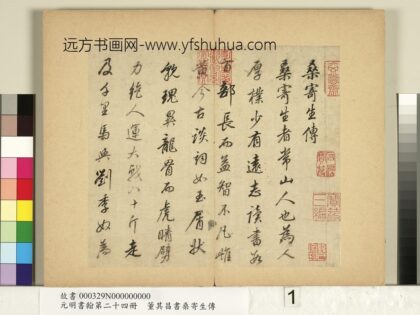 远方书画网-www.yfshuhua.com
桑寄生傳
桑寄生者常山人也為人
厚樸少有遠志讀書數
百部長而益智不凡雌
黃今古談詞如玉屑狀
貌瑰異龍骨而虎睛膂
力絕人運大戟八十斤走
及千里馬與劉季奴為
1
故書 000329N000000000
元明書翰第二十四冊 董其昌書桑寄生傳